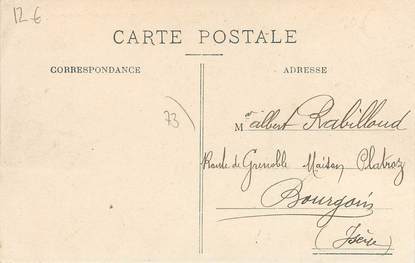 12 €
CARTE POSTALE
CORRESPONDANCE
ADRESSE
73
Mr albert Rabilloud
Route de Grenoble Maison Platroz
Bourgoin
(Isère)